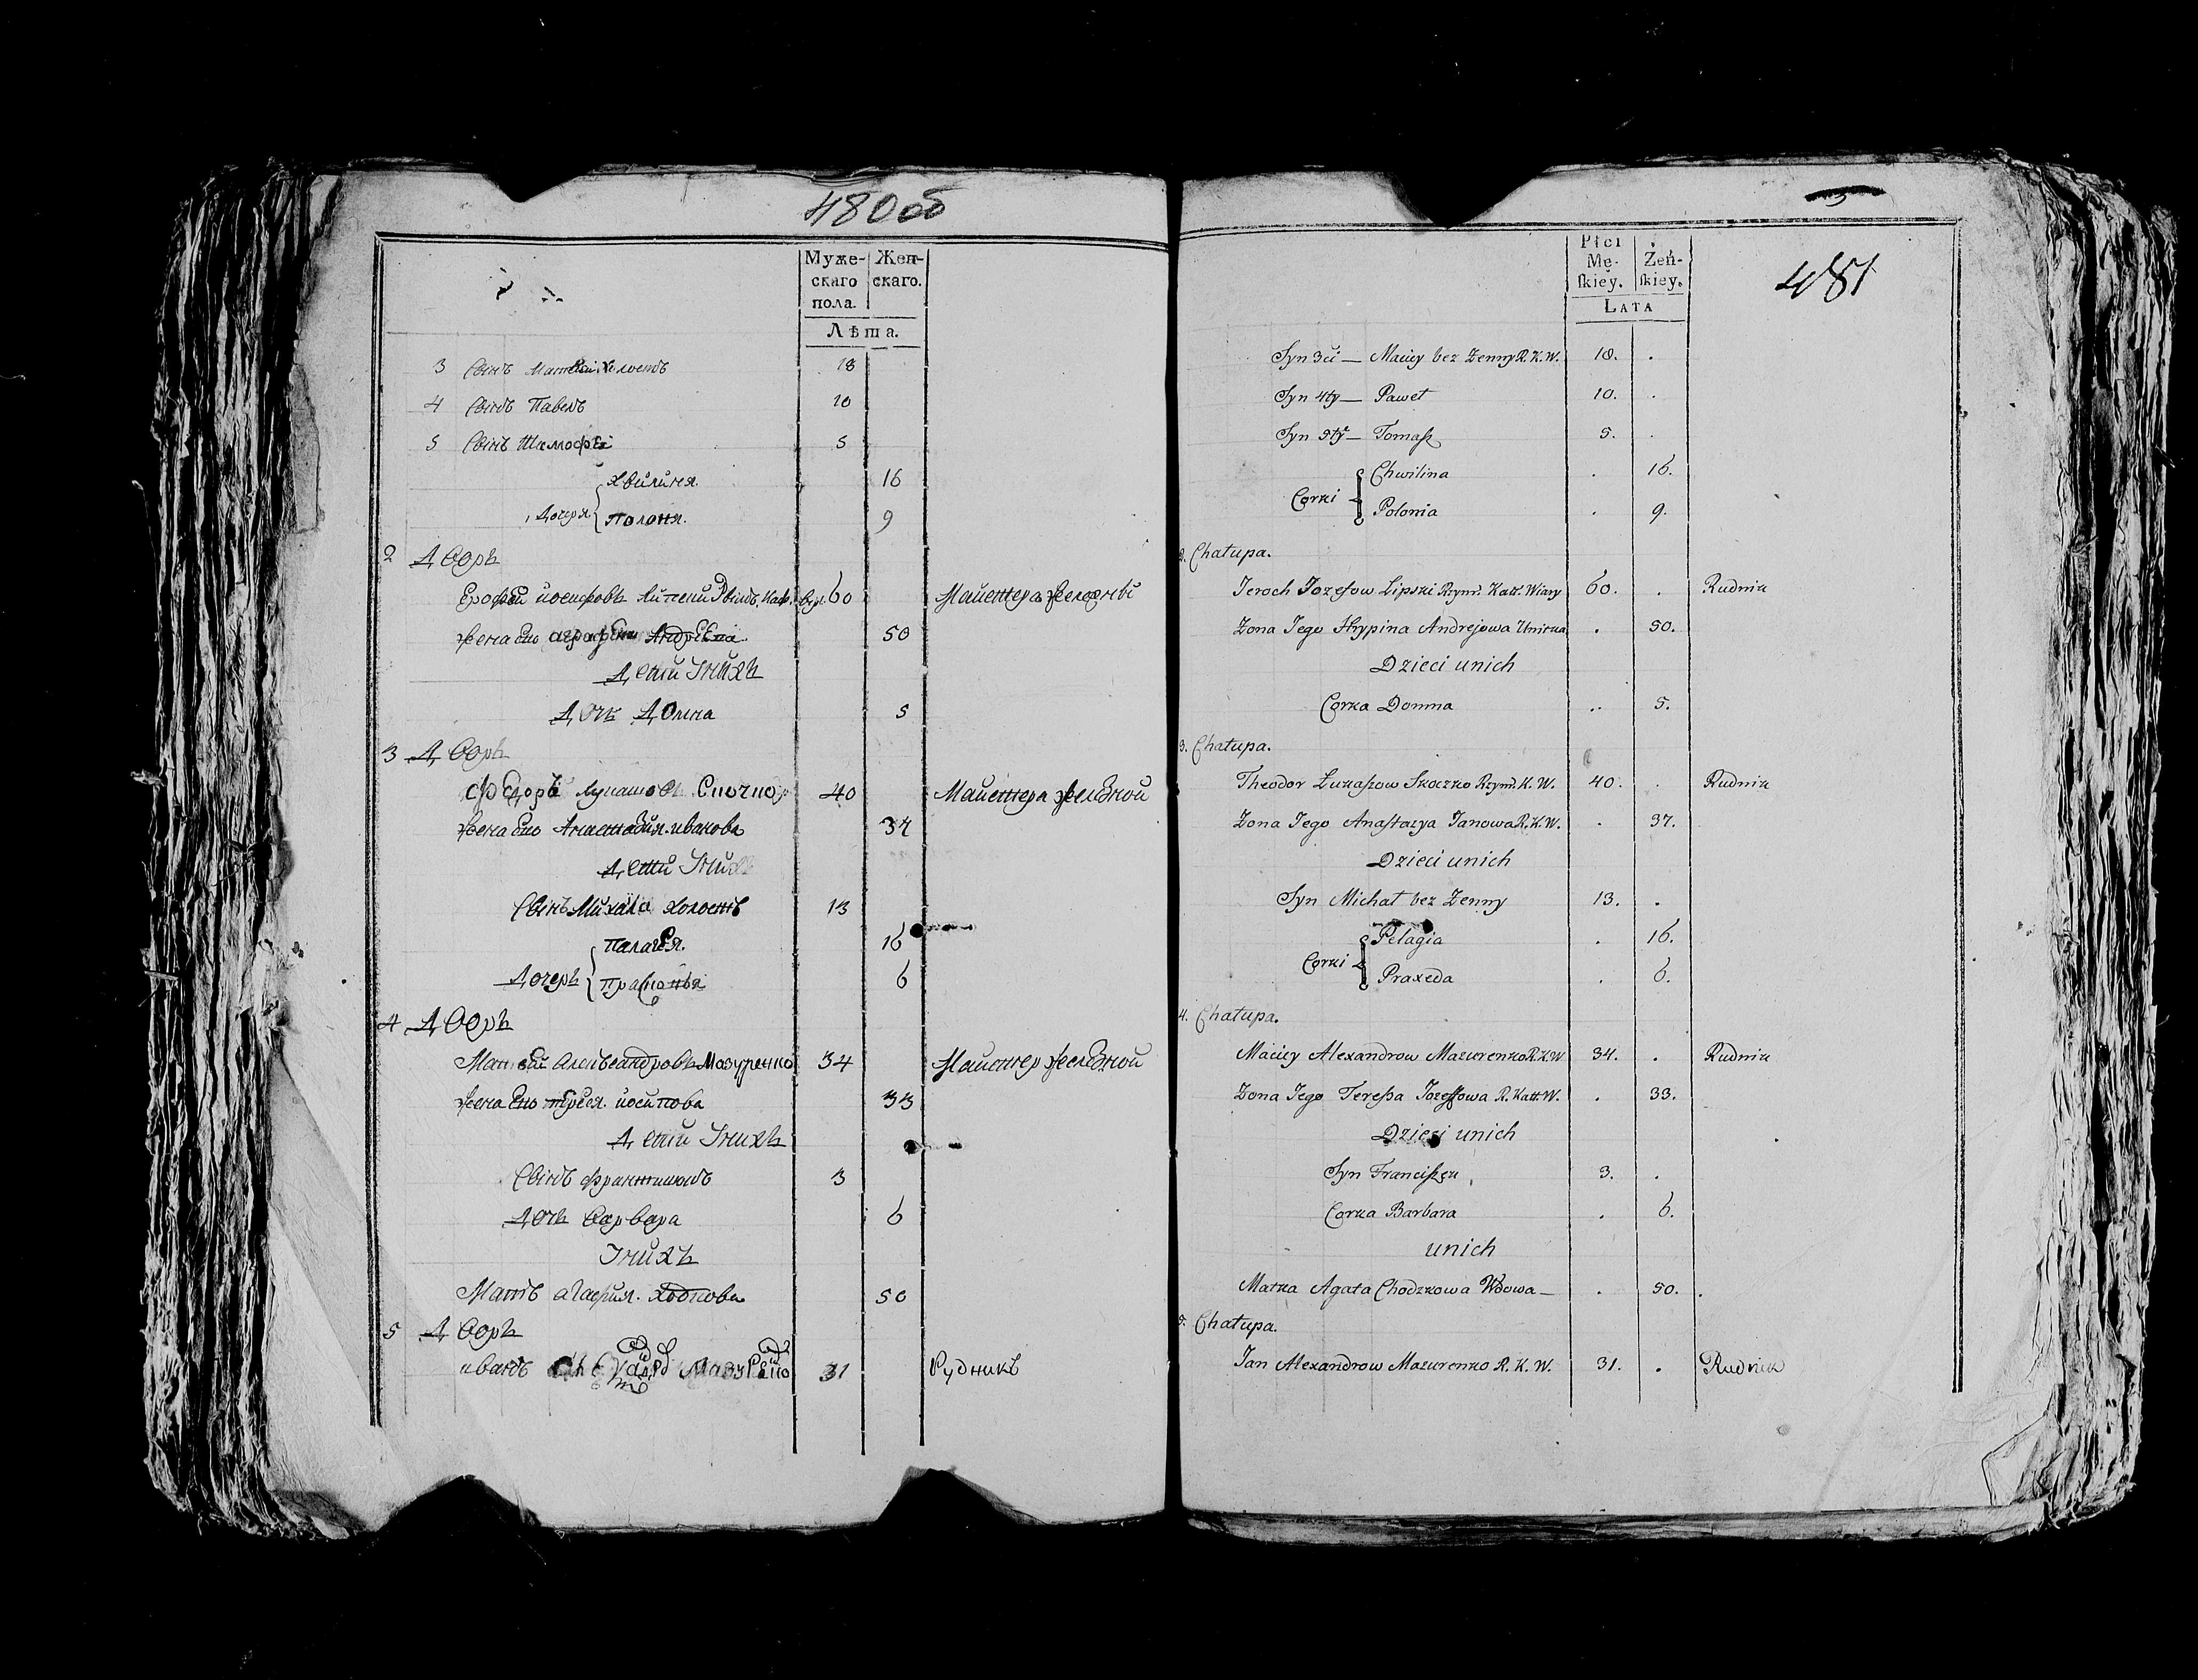 480об
Муже- Жен-
скаго скаго.
пола.
Лѣта.
3 Сынъ Матвей Холостъ 18
4 Сынъ Павелъ 10
5 Сынъ Тимофѣй 5
Хвилиня. 16
Дочеря
Полоня. 9
2 Дворъ
Ерофей иосифовъ Липски Римъ. Каф. вѣр. 60
жена Его аграфена Андрѣева. 50
Дети Унихъ
Дочь Домна 5
3 Дворъ
Федоръ Лукашовъ 40 Майстера железной
жена Его Анастасия иванова 37
Дети Унихъ
Сынъ Михаила холостъ 13
Палагея. 16
Дочерь
6
4 Дворъ
Матвей Александровъ Мазуренко 34 Майстер железной
жена Его тереся. иосипова 33
Дети Унихъ
Сынъ францишокъ 3
Дочь варвара 6
Унихъ
Мать агафия. 50
5 Дворъ
иванъ 31 Рудникъ
481
Płci
Mę- Żeń-
skiey. skiey.
LATA
Syn 3ci — Maciey bez Żenny R. K. W. 18. .
Syn 4ty — Paweł 10. .
Syn 5ty — Tomasz 5. .
Chwilina . 16.
Corki
Polonia . 9.
2. Chałupa.
Jeroch Jozefow Lipski Rzym. Katt. Wiary 60. . Rudnik
Żona Jego Hrypina Andrejowa Unitka . 50.
Dzieci unich
Corka Domna .. 5.
3. Chałupa.
Theodor Łukaszow Skoczko Rzym. K. W. 40. . Rudnik
Żona Jego Anastazya Janowa R. K. W. . 37.
Dzieci unich
Syn Michał bez Żenny 13. .
Pelagia . 16.
Corki
Praxeda . 6.
4. Chałupa.
Maciey Alexandrow Mazurenko R. K. W 34. . Rudnik
Żona Jego Teressa Jozeffowa R. Katt W. . 33.
Dzieci unich
Syn Franciszek 3. .
Corka Barbara . 6.
unich
Matka Agata Chodzkowa Wdowa — . 50. .
5. Chałupa.
Jan Alexandrow Mazurenko R. K. W. 31. . Rudnik